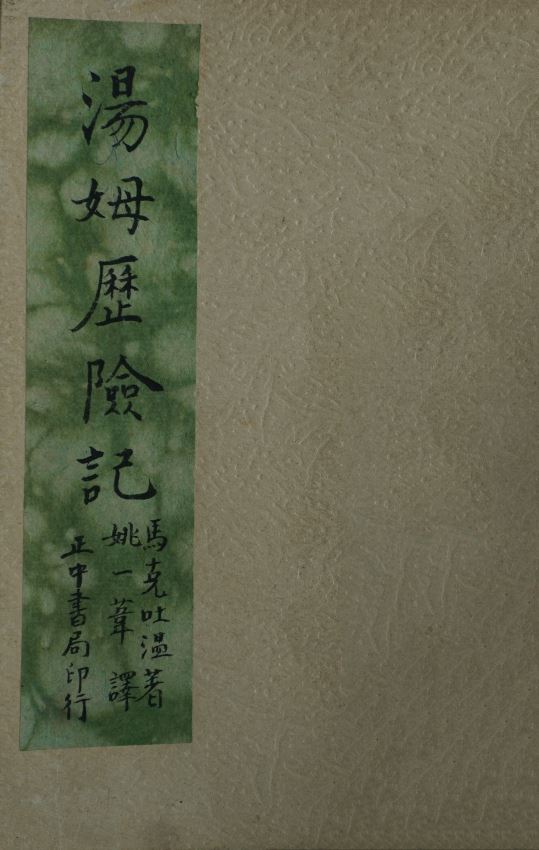 湯姆歷險記
馬克吐温著
姚一葦譯
正中書局印行